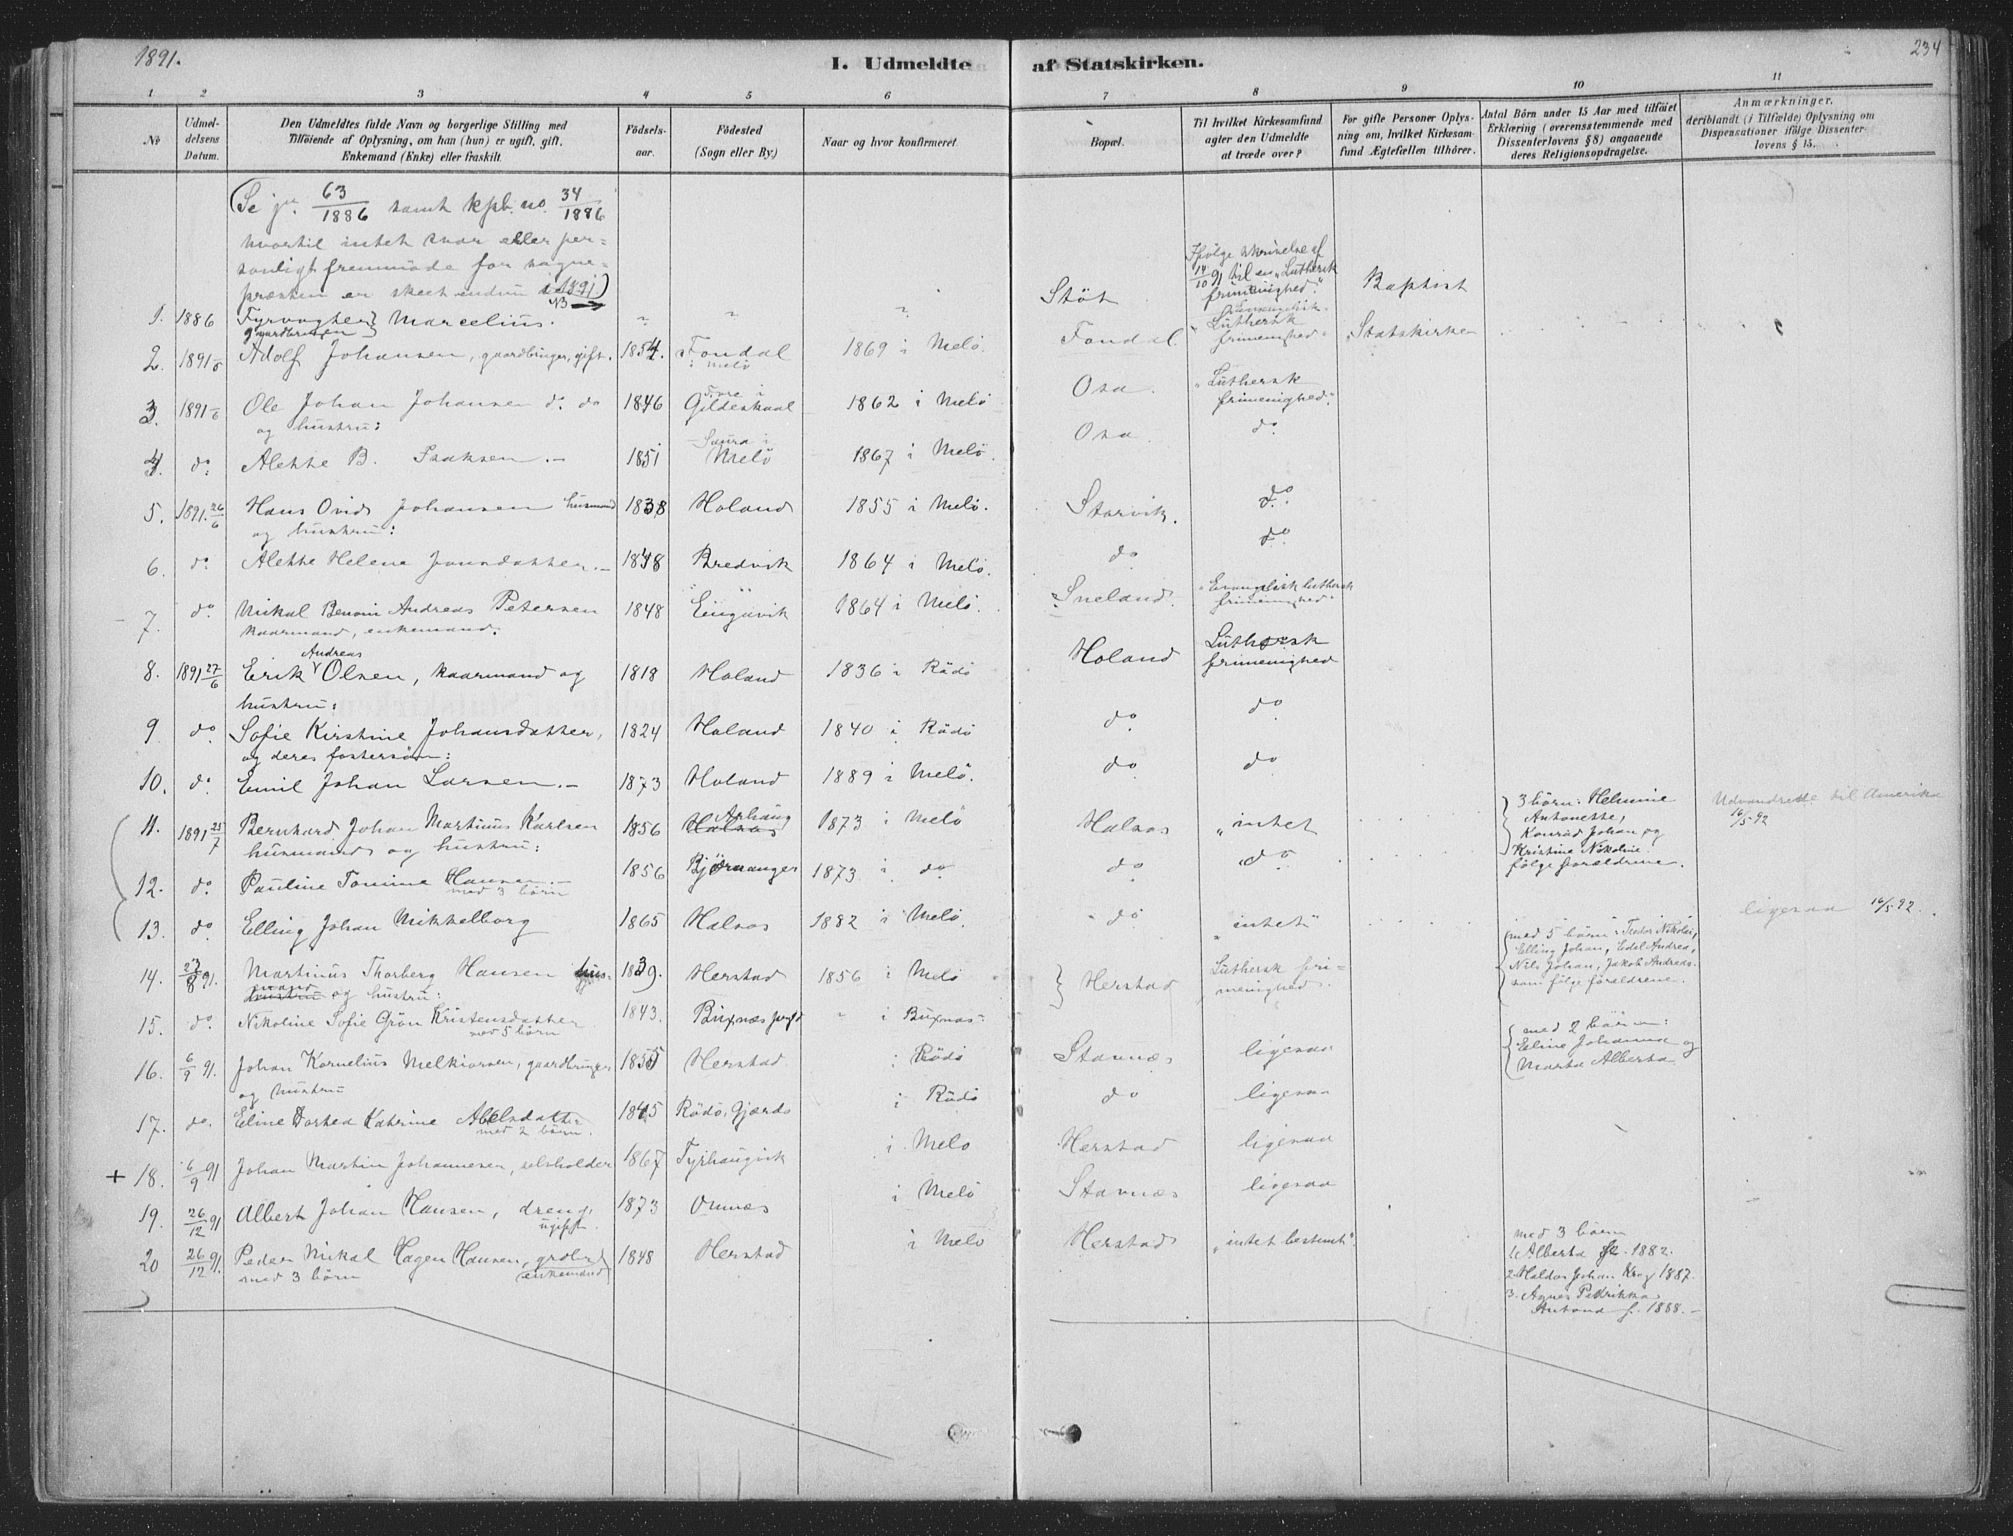 1891.
I. Udmeldte af Statskirken.
234
1 2 3 4 5 6 7 8 9 10 11
No
Udmeldelsens Datum.
Den Udmeldtes fulde Navn og borgerlige Stilling med
Tilføiende af Oplysning, om han (hun) er ugift, gift,
Enkemand (Enke) eller fraskilt.
Fødselsaar.
Fødested
(Sogn eller By.)
Naar og hvor konfirmeret
Bopæl.
Til hvilket Kirkesamfund
agter den Udmeldte
at træde over?
For gifte Personer Oplysning
om, hvilket Kirkesamfund
Ægtefællen tilhører.
Antal Børn under 15 Aar med tilføiet
Erklæring (overensstemmende med
Dissenterlovens § 8) angaaende
deres Religionsopdragelse.
Anmærkninger,
deriblandt (i Tilfælde) Oplysning om
Dispensationer ifølge Dissenterlovens § 15.
(Se jn. 63/1886 samt kpb. no. 34/1886
hvortil intet svar eller per=
sonligt fremmöde for sogne=
præsten er skeet endnu i 1891)
NB
1. 1886 Fyrvogter Marcelius. " " " Støt Ifølge skrivelse af 14/10 91 til en "Luthersk frimenighed." Baptist
2. 1891 Adolf Johansen, gaardbruger, gift. 1854 Fondal i Melö 1869 i Melö Fondal "Luthersk frimenighed" Statskirke
3. 1891 Ole Johan Johansen do. do og hustru: 1846 Fore i Gildeskaal 1862 i Melö Osa "Luthersk frimenighed".
4. do. Alette B. Isaksen. – 1851 Saura i Melö 1867 i Melö. Osa. do.
5. 1891. 26/6 Hans Ovid Johansen husmand og hustru: 1838 Holand 1855 i Melö. Storvik. do.
6. do. Alette Helena Jonsdatter. – 1848 Bredvik 1864 i Melö. do do.
7. do Mikal Benoni Andreas Petersen kaarmand, enkemand. 1848 Engavik 1864 i Melö. Sneland. "Evangelisk luthersk frimenighed"
8. 1891 27/6 Erik Andreas Olsen, kaarmand og hustru: 1818 Holand 1836 i Rödö Holand Luthersk frimenighed
9 do. Sofie Kirstine Johansdatter, og deres fostersön: 1824 Holand 1840 i Rödö do do
10. do. Emil Johan Larsen. – 1873 Holand 1889 i Melö. do do
11. 1891 25/7 Bernhard Johan Martinus Karlsen husmand og hustru: 1856 Halsos 1873 i Melö Halsos "intet
3 börn: Helmine Antonette, Konrad Johan og Kristine Nikoline. følge forældrene.
Udvandrede til Amerika 16/5 92
12. do. Pauline Tomine Hansen – med 3 börn 1856 Bjørnanger 1873 i do. do "do
13. do. Elling Johan Mikkelborg 1865 Halsos 1882 i Melö do "intet" ligesaa 16/5 92.
14. 23/8 91. Martinus Thorberg Hansen husmand og hustru: 1839. Herstad 1856 i Melö Herstad Luthersk frimenighed.
med 5 börn: Teodor Nikolai, Elling Johan, Edel Andrea, Nils Johan, Jakob Andreas som følge forældrene.
15. do. Nikoline Sofie Grön Kristensdatter med 5 börn 1843. Buxnæs prgld " i Buxnæs
16. 6/9 91. Johan Kornelius Melkiorsen, gaardbruger og hustru 1855 Herstad i Rödö Stavnæs ligesaa
med 2 börn: Eline Johanna og Marta Alberta
17. do. Eline Dortea Katrine Abelsdatter med 2 börn. 1845 Rödö, Gjærdö i Rödö do ligesaa
+ 18. 6/9 91 Johan Martin Johannesen, selsholder 1867 Tyrhaugvik i Melö Herstad ligesaa
19. 26/12 91 Albert Johan Hansen, dreng, ugift. 1873 Ornæs i Melö Stavnæs ligesaa
20 26/12 91. Peder Mikal Hagen Hansen, med 3 börn enkemand 1848 Herstad i Melö Herstad "intet bestemt".
med 3 börn
1. Alberta f. 1882.
2. Haldor Johan Krog 1887.
3. Agnes Petrikka Antona f. 1888. –